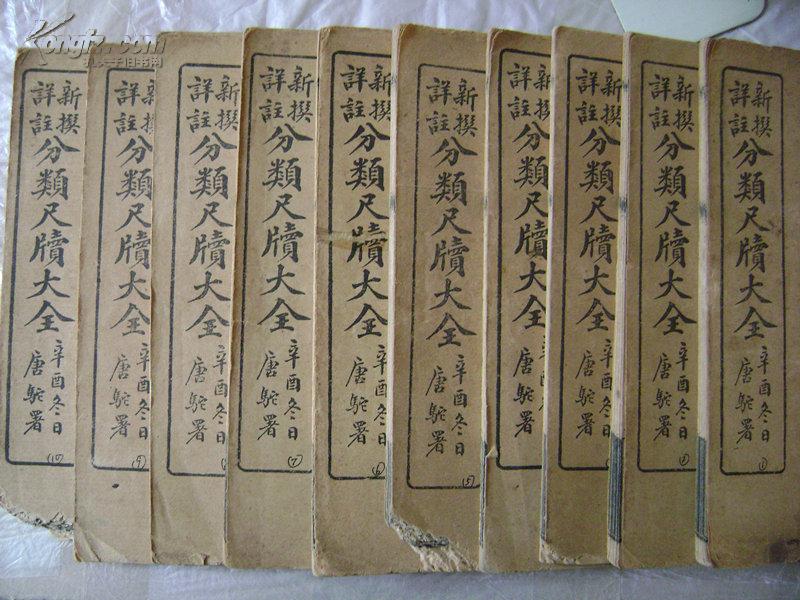 Kongfz.com
孔夫子旧书网
新撰
詳註
分類尺牘大全
辛酉冬日
唐駝署
(1)
新撰
詳註
分類尺牘大全
辛酉冬日
唐駝署
(2)
新撰
詳註
分類尺牘大全
辛酉冬日
唐駝署
新撰
詳註
分類尺牘大全
辛酉冬日
唐駝署
新撰
詳註
分類尺牘大全
辛酉冬日
唐駝署
(5)
新撰
詳註
分類尺牘大全
辛酉冬日
唐駝署
(6)
新撰
詳註
分類尺牘大全
辛酉冬日
唐駝署
(7)
新撰
詳註
分類尺牘大全
辛酉冬日
唐駝署
新撰
詳註
分類尺牘大全
辛酉冬日
唐駝署
(9)
新撰
詳註
分類尺牘大全
辛酉冬日
唐駝署
(10)